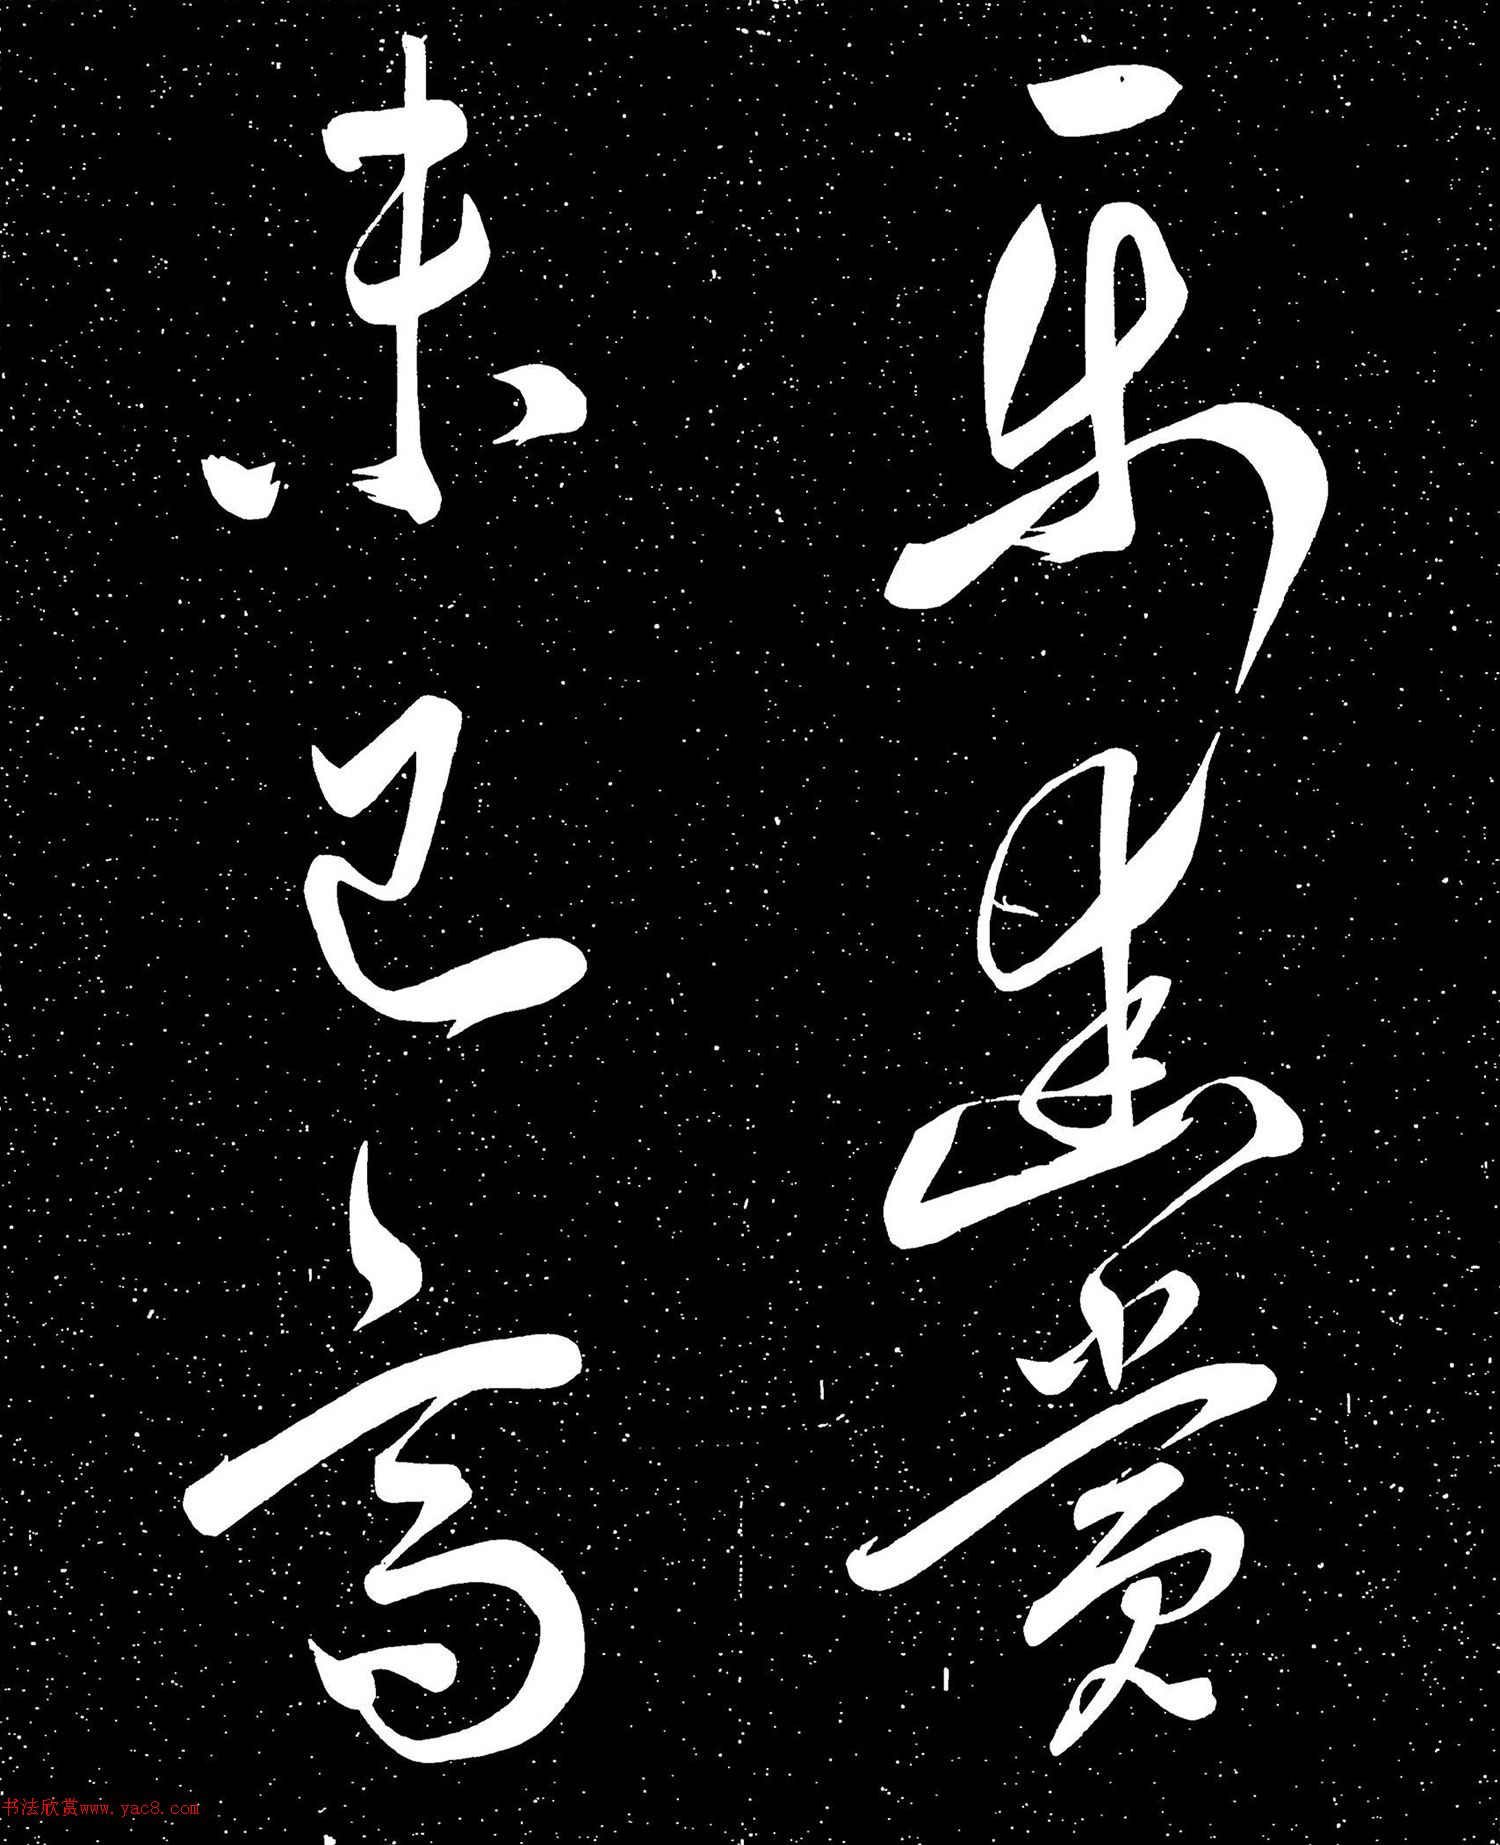 乐幽赏
未已高
书法欣赏www.yac8.com